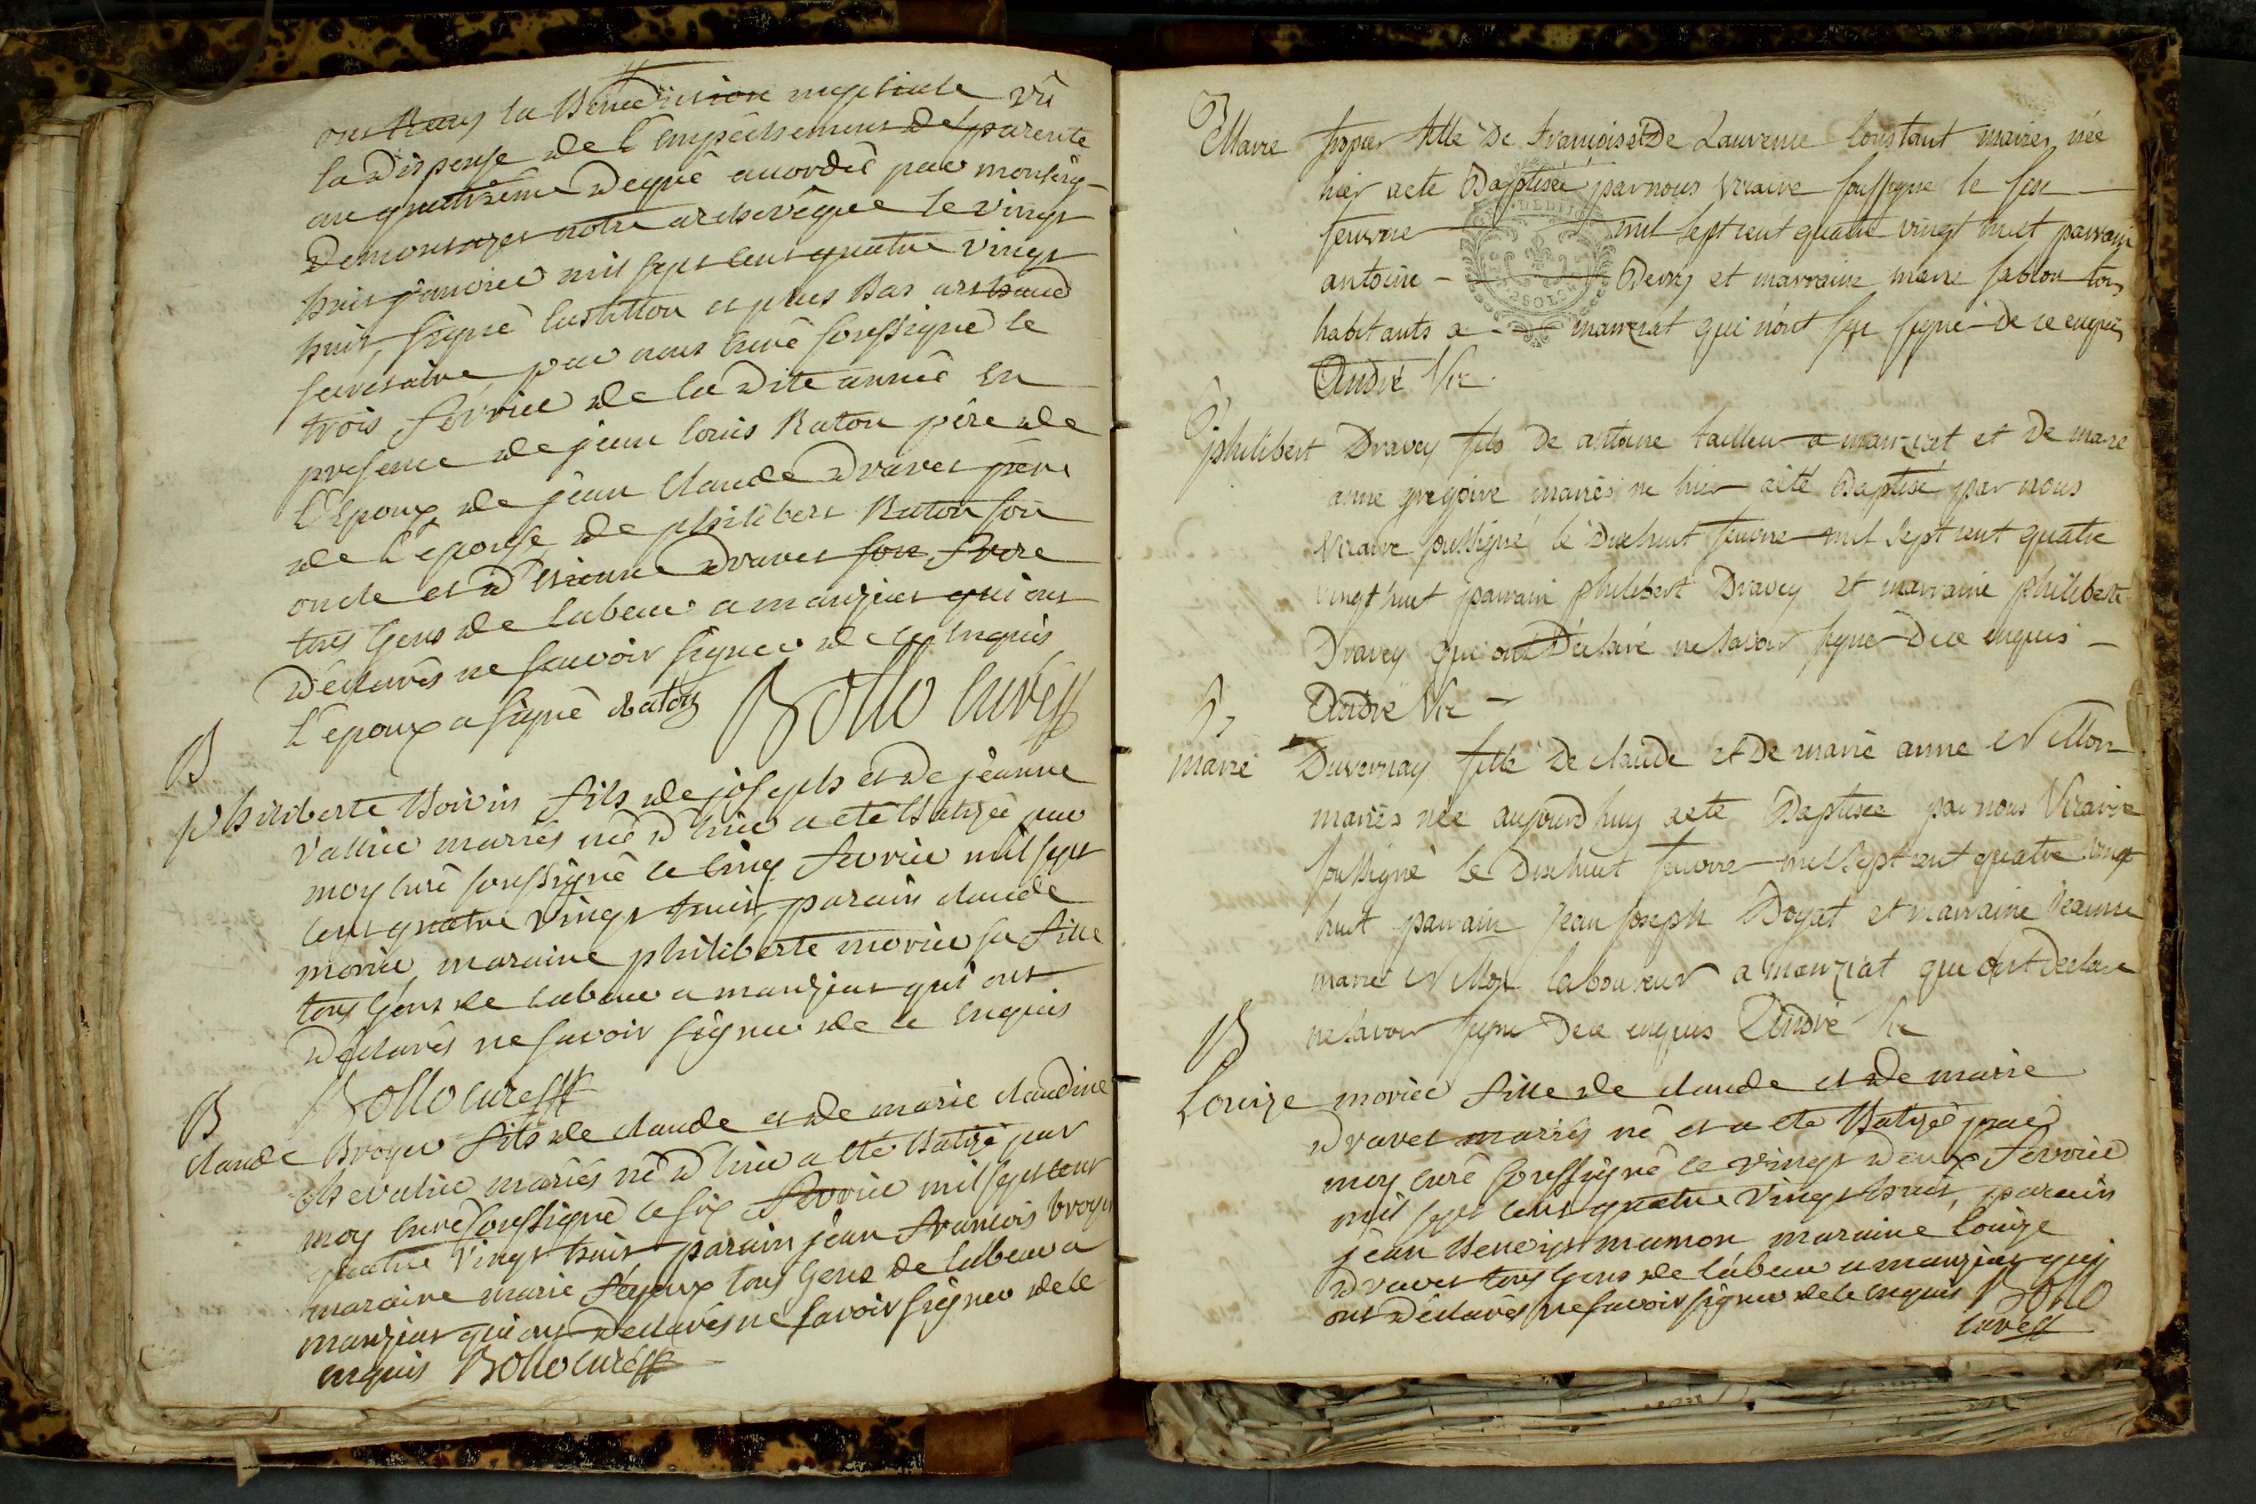 ont Reçus la Benediction nuptiale vû
la Dispense de l'empêchement de parenté
au quatrième Degré accordée par monseig-
Demontazet notre archevêque le vingt
huit janvier mil sept cent quatre vingt
huit, signé Castillon et plus Bas
secretaire, par nous curé soussigné le
trois fevrier de la Dite année En
presence de jean louis Raton père de
L'Epoux de jean Claude Dravet père
de l'Epouse de philibert Raton son
oncle et d'Etienne Dravet son frere
tous gens de labeur a manziat qui ont
Déclarés ne savoir signer de ce Enquis
L'Epoux a signé Raton Bollo Curé
B
philiberte Boivin fils de joseph et de jeanne
mariés né D'hier a eté Batizée par
moy curé soussigné le cinq fevrier mil sept
cent quatre vingt huit, parain claude
morier, maraine philiberte morier sa fille
tous gens de labeur a manziat qui ont
Déclarés ne savoir signer de ce Enquis
Bollo curé
B
claude Broyer fils de claude et de marie claudine
chevalier mariés né D'hier a eté Batizé par
moy curé soussigné le six fevrier mil sept cent
quatre vingt huit parain jean francois broyer
maraine marie tous gens de labeur a
manziat qui ont Déclarés ne savoir signer de ce
enquis Bollo curé
Marie fille De francois et De Laurence Constant mariés née
hier aete Baptisée par nous vicaire soussigne le six
fevrier mil sept cent quatre vingt huit parrain
antoine Devry et marraine marie tous
habitants a manziat qui n'ont sçu signé De ce enquis
André Vic
philibert Dravey fils De antoine tailleur a manziat et De marie
anne gregoire mariés ne hier aété Baptisé par nous
vicaire soussigné le Dixhuit fevrier mil sept cent quatre
vingt huit parrain philibert Dravey et marraine philiberte
Dravey qui ont Déclaré ne savoir signer De ce enquis
André Vic
marie Duvernay fille De claude et De marie anne
mariés née aujourd'huy aeté Baptisée par nous Vicaire
soussigné le Dixhuit fevrier mil sept cent quatre vingt
huit parrain Jean Joseph Doyat et marraine Jeanne
marie laboureur a manziat qui ont declaré
ne savoir signer De ce enquis André Vic
B
Louize morier fille de claude et de marie
Dravet mariés né et a eté Batizé par
moy curé soussigné le vingt deux fevrier
mil sept cent quatre vingt huit, parain
jean mamon maraine Louize
Dravet tous gens de labeur a manziat qui
ont Déclarés ne savoir signer de ce enquis Bollo
curé